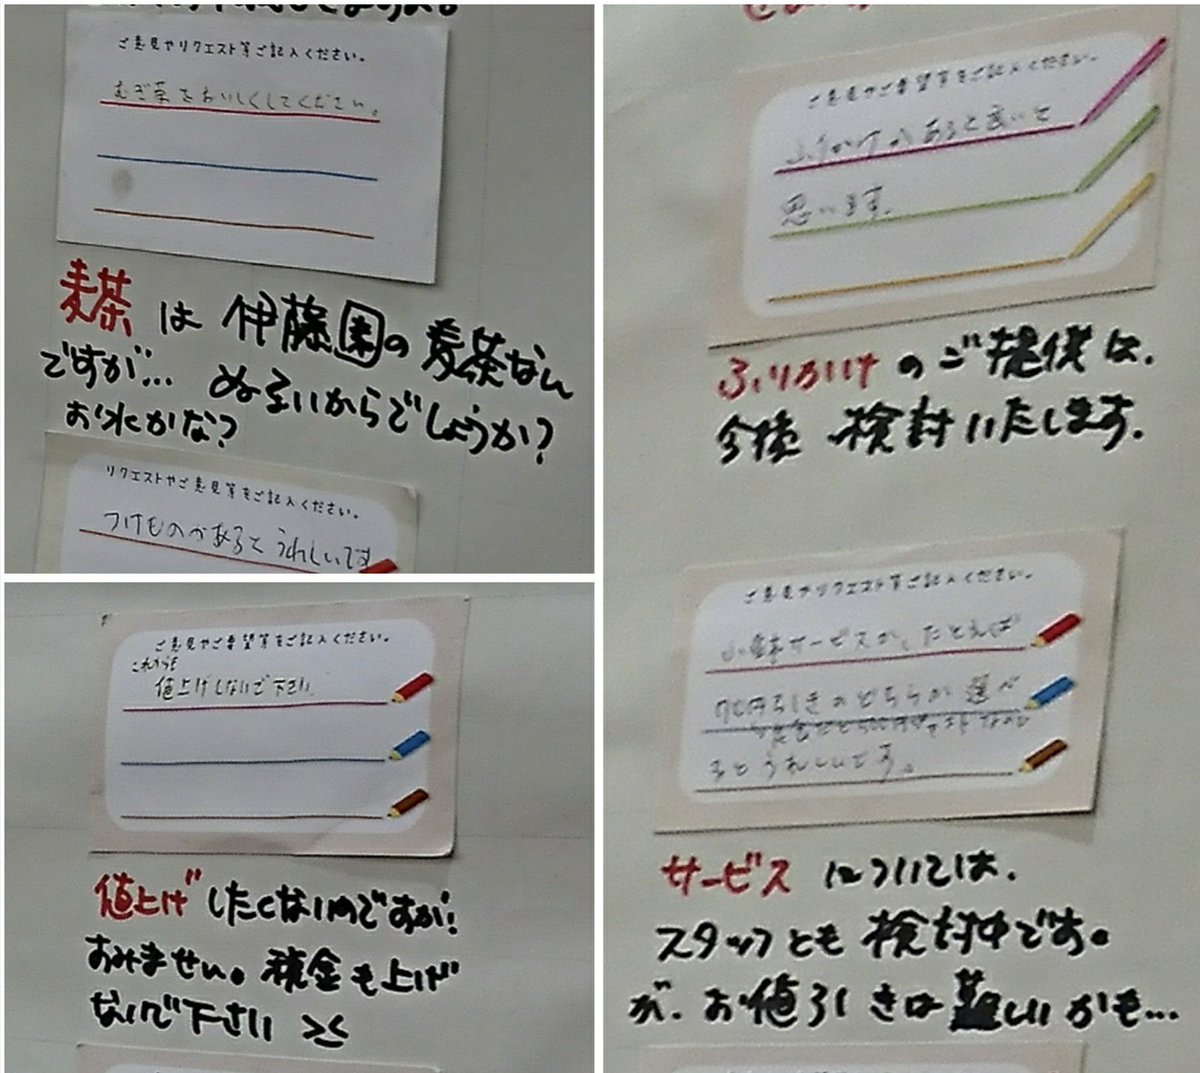 ご意見やリクエスト等ご記入ください。
むぎ茶をおいしくしてください。
麦茶は伊藤園の麦茶なん
ですが… ぬるいからでしょうか?
お水かな?
リクエストやご意見等をご記入ください。
つけものがあるとうれしいです
ご意見やご希望等をご記入ください。
これからも
値上げしないで下さい
値上げしたくないのですが!
すみません。税金も上げ
ないで下さい ><
ご意見やご希望等をご記入ください。
ふりかけがあると良いと
思います。
ふりかけのご提供は、
今後検討いたします。
ご意見やリクエスト等ご記入ください。
小鉢サービスか、たとえば
円引きのどちらか選べ
るとうれしいです。
サービスについては、
スタッフとも検討中です。
が、お値引きは難しいかも…